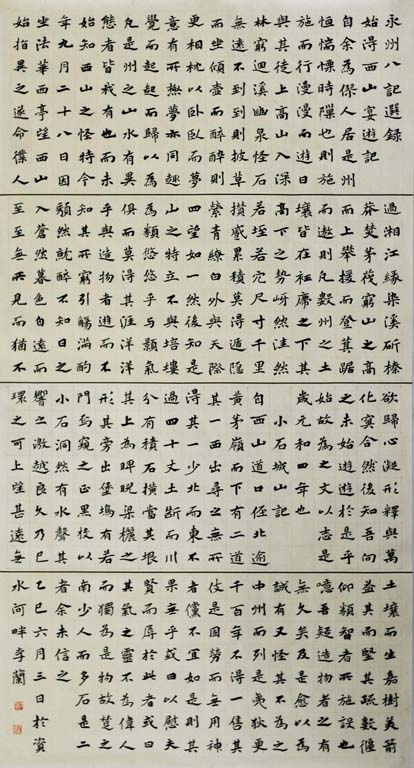 永州八記選錄
始得西山宴遊記
自余為僇人居是州
恒惴慄時隟也則施
施而行漫漫而遊日
與其徒上高山入深
林窮迴溪幽泉怪石
無遠不到到則披草
而坐傾壺而醉醉則
更相枕以臥臥而夢
意有所極夢亦同趣
覺而起起而歸以為
凡是州之山水有異
態者皆我有也而未
始知西山之怪特今
年九月二十八日因
坐法華西亭望西山
始指異之遂命僕人
過湘江緣染溪斫榛
莽焚茅茷窮山之高
而止攀援而登箕踞
而遨則凡數州之土
壤皆在衽席之下其
高下之勢岈然洼然
若垤若穴尺寸千里
攢蹙累積莫得遁隱
縈青繚白外與天際
四望如一然後知是
山之特立不與培塿
為類悠悠乎與顥氣
俱而莫得其涯洋洋
乎與造物者遊而不
知其所窮引觴滿酌
頹然就醉不知日之
入蒼然暮色自遠而
至至無所見而猶不
欲歸心凝形釋與萬
化冥合然後知吾嚮
之未始遊遊於是乎
始故為之文以志是
歲元和四年也
小石城山記
自西山道口徑北逾
黃茅嶺而下有二道
其一西出尋之無所
得其一少北而東不
過四十丈土斷而川
分有積石橫當其垠
其上為睥睨梁欐之
形其旁出堡塢有若
門焉窺之正黑投以
小石洞然有水聲其
響之激越良久乃已
環之可上望甚遠無
土壤而生嘉樹美箭
益其而堅其疏數偃
仰類智者所施設也
噫吾疑造物者之有
無久矣及是愈以為
誠有又怪其不為之
中州而列是夷狄更
千百年不得一售其
伎是固勞而無用神
者儻不宜如是則其
果無乎或曰以慰夫
賢而辱於此者或曰
其氣之靈不為偉人
而獨為是物故楚之
南少人而多石是二
者余未信之
乙巳六月三日於資
水河畔李蘭